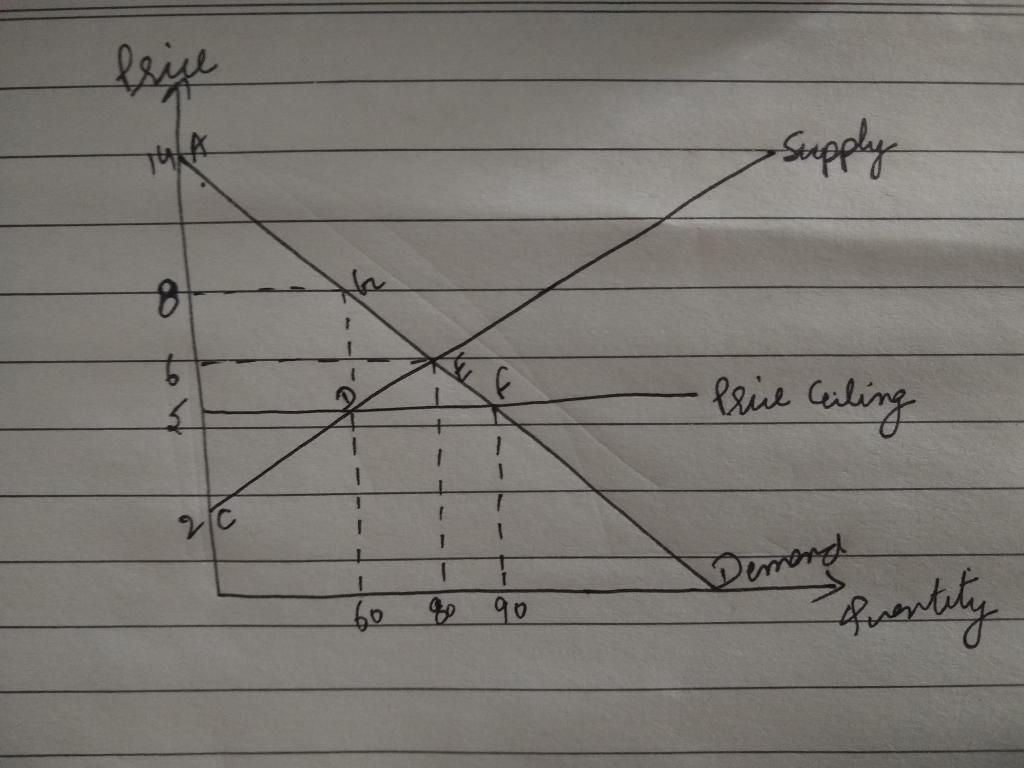 Price
14 A
Supply
8 G
6 E
5 D F Price Ceiling
2 C
Demand
60 80 90 Quantity